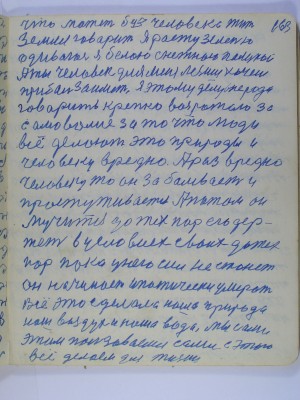 что может без человека жить 163
Земля говорит Я расту зеленю
одиваюся я белою снежною пеленой
А ты человек для меня лешни хочеш
прибил Занимать Я этому делу природа
говорить крепко возрожаю за
самоволие за то что люди
всё делают это природы и
человеку вредно. А раз вредно
человеку то он Заболивает и
простуживается А потом он
мучится до тех пор его дер-
жет в условиях своих до тех
пор пока у него сил не станет
он начинает и потихеньку умерать
Всё это сделала наша природа
наш воздух и наша вода. мы сами
этим пользовались сами с этого
всё делаем для жизни